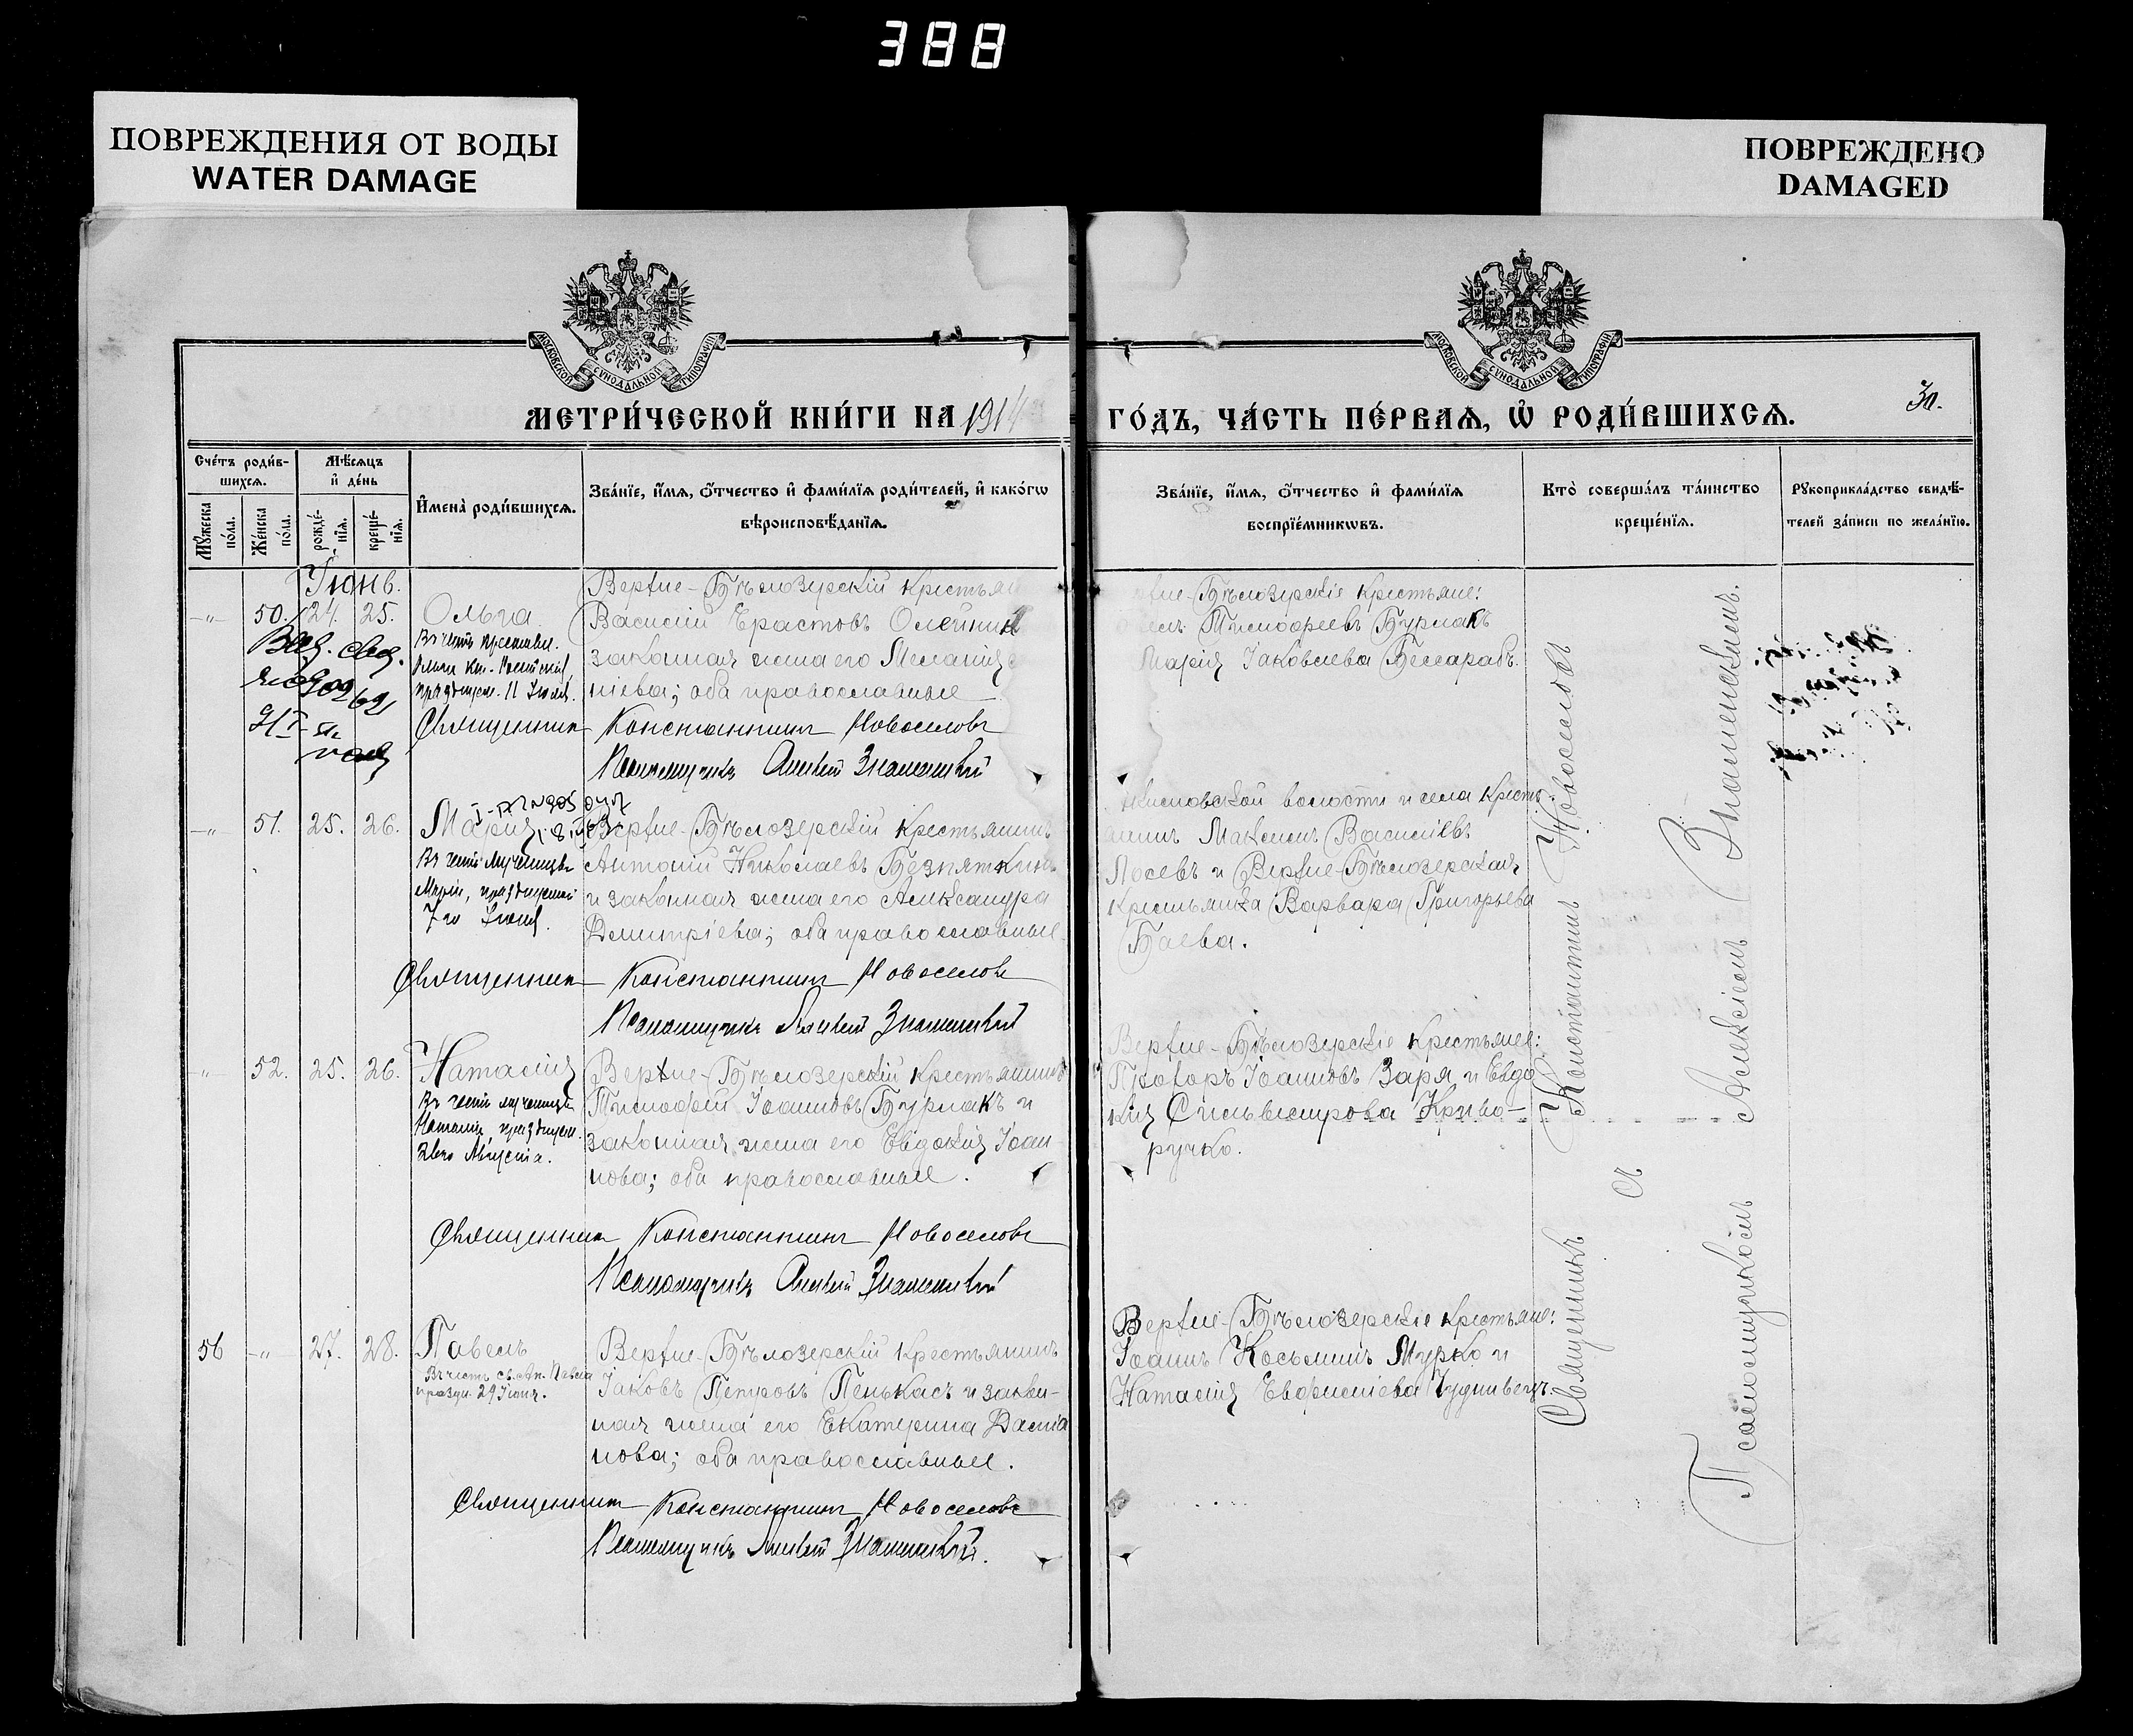 388
ПОВРЕЖДЕНИЯ ОТ ВОДЫ
WATER DAMAGE
ПОВРЕЖДЕНО
DAMAGED
МОСКОВСКОЙ СУНОДАЛЬНОЙ ТИПОГРАФІИ
МОСКОВСКОЙ СУНОДАЛЬНОЙ ТИПОГРАФІИ
МЕТРИ́ЧЕСКОЙ КНИ́ГИ НА 1914
ГО́ДЪ, ЧА́СТЬ ПЕ́РВАѦ, Ѡ҆ РОДИ́ВШИХСѦ.
30.
Сче́тъ роди́в-
шихсѧ.
Мѣ́сѧцъ
и҆ де́нь
Мꙋ́жеска
по́ла.
Же́нска
по́ла.
рожде́-
нїѧ.
креще́-
нїѧ.
И҆мена̀ роди́вшихсѧ.
Зва́нїе, и҆́мѧ, ѻ҆́тчество и҆ фами́лїѧ роди́телей, и҆ како́гѡ
вѣроисповѣ́данїѧ.
Зва́нїе, и҆́мѧ, ѻ҆́тчество и҆ фами́лїѧ
воспрїе́мникѡвъ.
Кто̀ соверша́лъ та́инство
креще́нїѧ.
Рꙋкоприкла́дство свидѣ́-
телей за́писи по жела́нїю.
Іюнь.
-"- 50. 24. 25. Ольга
Верхне-Бѣлозерскій крестьян
Василій Ерастовъ Олейник
законная жена его Меланія
ніева; оба православные
Ольги кн. Россійской,
празднуем. 11 Іюля.
Выд. свид.
Священник Константинъ Новоселовъ
Псаломщикъ Алексій Знаменскій
Бѣлозерскіе крестьяне:
Тимофеевъ Бурлакъ
Марія Іаковлева Бессарабъ.
-"- 51. 25. 26. Марія
Въ честь мученицы
Маріи, празднуемой
7го Іюня.
Верхне-Бѣлозерскій крестьянинъ
Антоній Николаевъ Безпяткинъ
и законная жена его Александра
Димитріева; оба православные.
Священник Константинъ Новоселовъ
Псаломщикъ Алексій Знаменскій
волости и села кресть-
янинъ Максимъ Василіевъ
Лосевъ и Верхне-Бѣлозерская
крестьянка Варвара Григорьева
Баева.
-"- 52. 25. 26. Наталія
Въ честь мученицы
Наталіи, празднуем.
26го Августа.
Верхне-Бѣлозерскій крестьянинъ
Тимофей Іоанновъ Бурлакъ и
законная жена его Евдокія Іоан
нова; оба православные.
Священник Константинъ Новоселовъ
Псаломщикъ Алексій Знаменскій
Верхне-Бѣлозерскіе крестьяне:
Прохоръ Іоанновъ Заря и Евдо
кія Сильвестрова Криво-
ручко.
56 -"- 27. 28. Павелъ
Въ честь св. Ап. Павла
праздн. 29 Іюня.
Верхне-Бѣлозерскій крестьянинъ
Іаковъ Петровъ Пенькасъ и закон-
ная жена его Екатерина Даміа
нова; оба православные.
Священник Константинъ Новоселовъ
Псаломщикъ Алексій Знаменскій.
Верхне-Бѣлозерскіе крестьяне:
Іоаннъ Косьминъ Мурко и
Наталія Евфиміева
Священникъ Константинъ Новоселовъ
съ
Псаломщикомъ Алексіемъ Знаменскимъ.